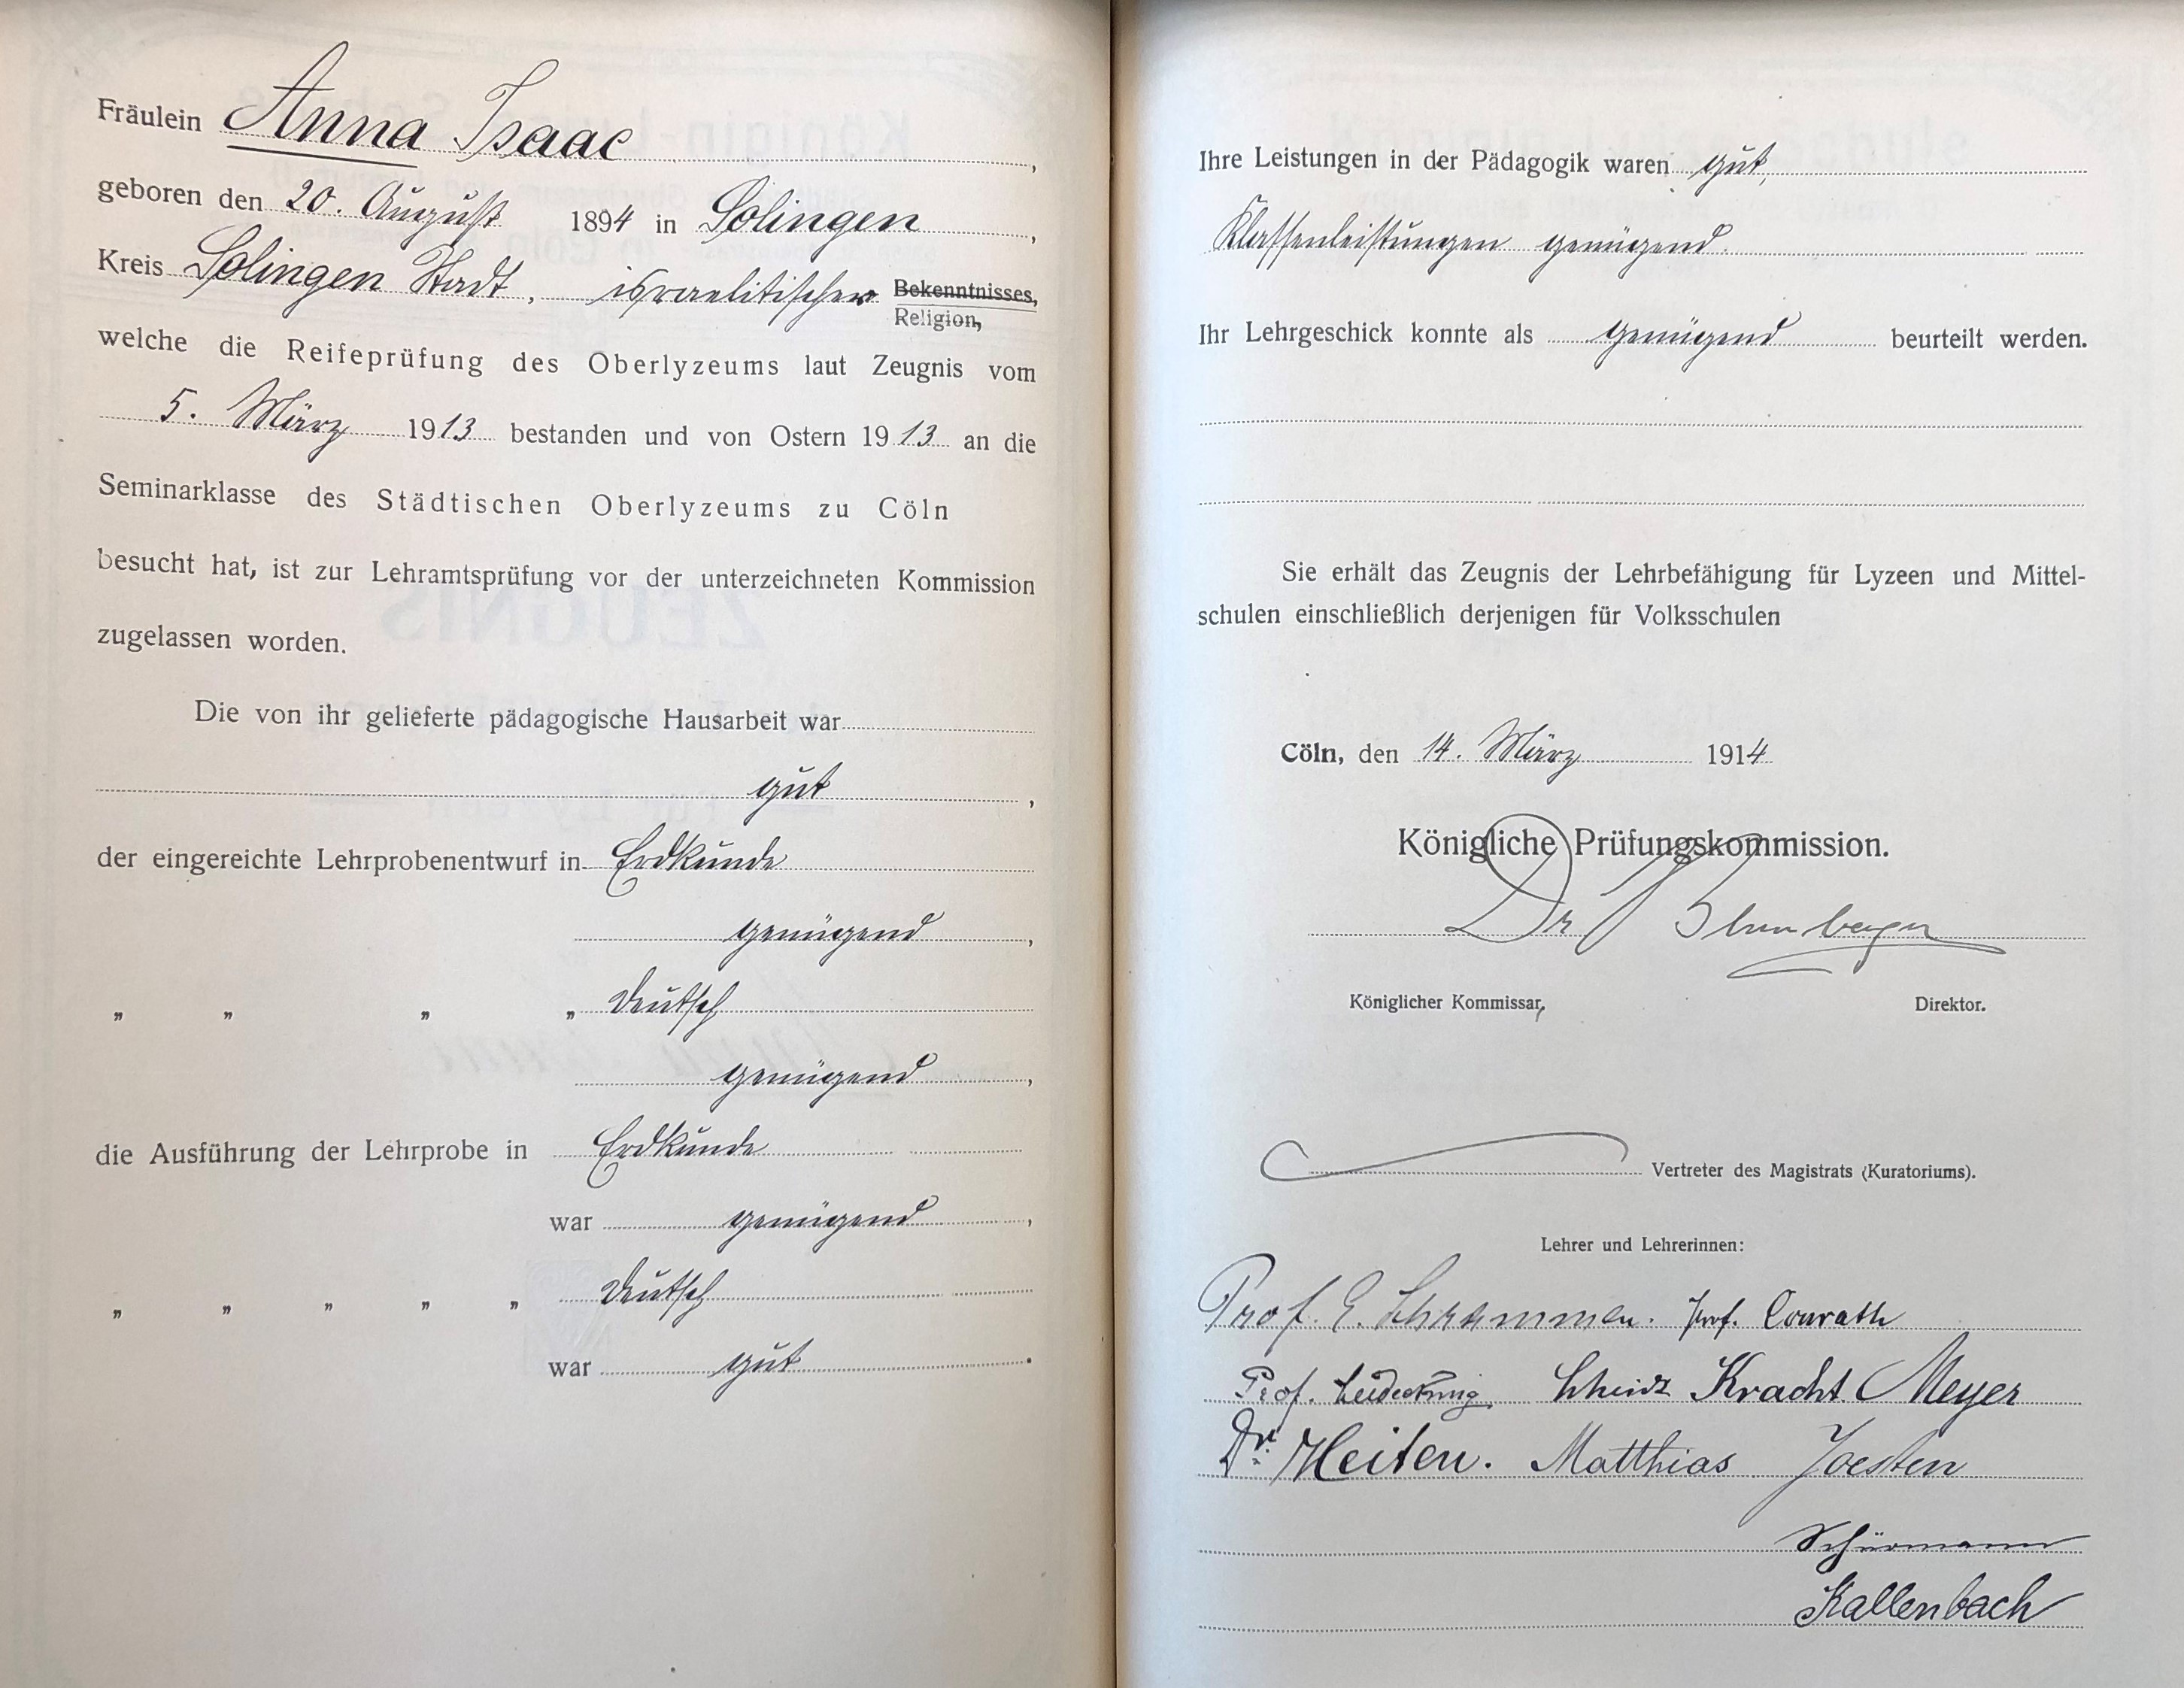 Fräulein Anna Isaac,
geboren den 20. August 1894 in Solingen,
Kreis Solingen Stadt, israelitischer Bekenntnisses,
Religion,
welche die Reifeprüfung des Oberlyzeums laut Zeugnis vom
5. März 1913 bestanden und von Ostern 1913 an die
Seminarklasse des Städtischen Oberlyzeums zu Cöln
besucht hat, ist zur Lehramtsprüfung vor der unterzeichneten Kommission
zugelassen worden.
Die von ihr gelieferte pädagogische Hausarbeit war
gut,
der eingereichte Lehrprobenentwurf in Erdkunde
genügend,
„ „ „ „ Deutsch
genügend,
die Ausführung der Lehrprobe in Erdkunde
war genügend,
„ „ „ „ „ Deutsch
war gut.
Ihre Leistungen in der Pädagogik waren gut,
Klassenleistungen genügend.
Ihr Lehrgeschick konnte als genügend beurteilt werden.
Sie erhält das Zeugnis der Lehrbefähigung für Lyzeen und Mittel-
schulen einschließlich derjenigen für Volksschulen
Cöln, den 14. März 1914
Königliche Prüfungskommission.
Dr
Königlicher Kommissar, Direktor.
Vertreter des Magistrats (Kuratoriums).
Lehrer und Lehrerinnen:
Prof. E. Schrammen. Prof. Conrath
Prof. Kracht. Meyer
Dr. Heiten. Matthias Joesten
Schürmann
Kallenbach